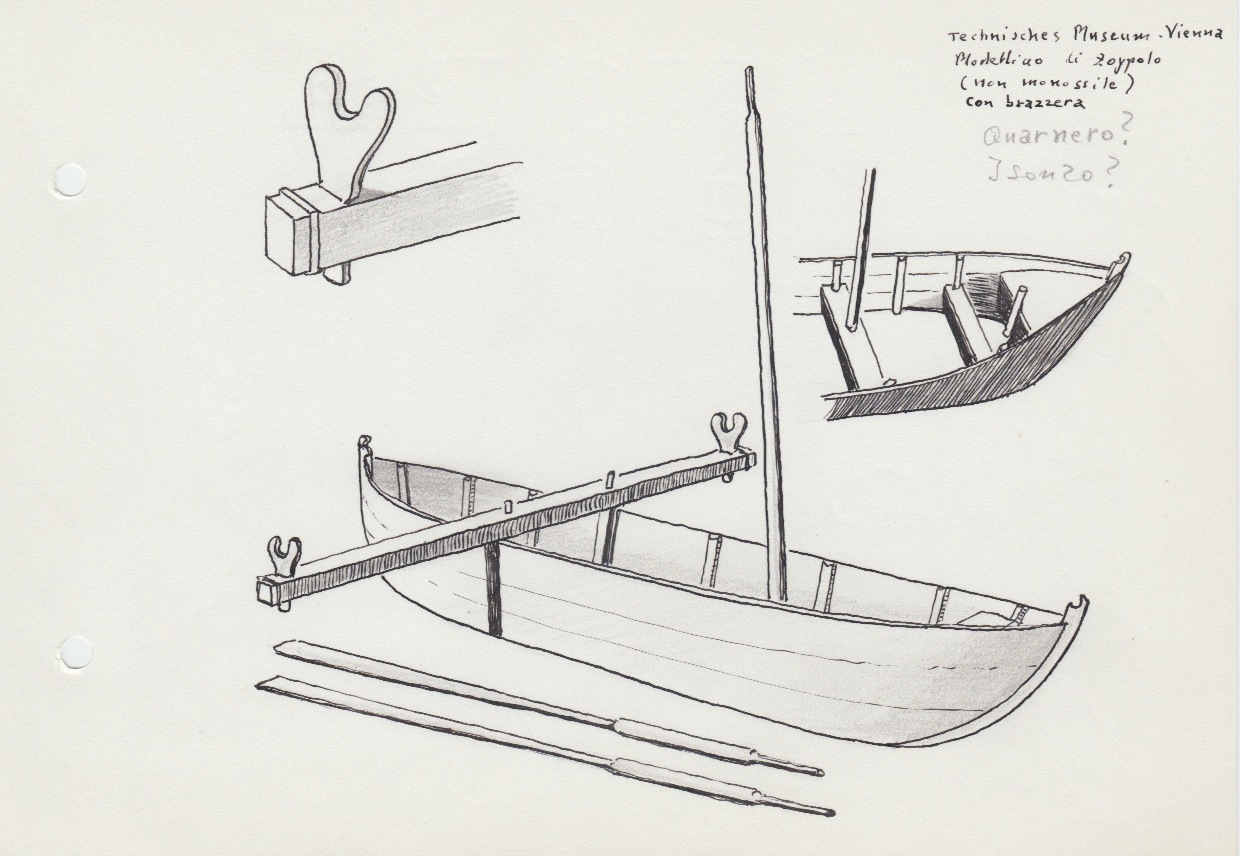 Technisches Museum - Vienna
Modellino di zoppolo
(non monossile)
con brazzera
Quarnero?
Isonzo?